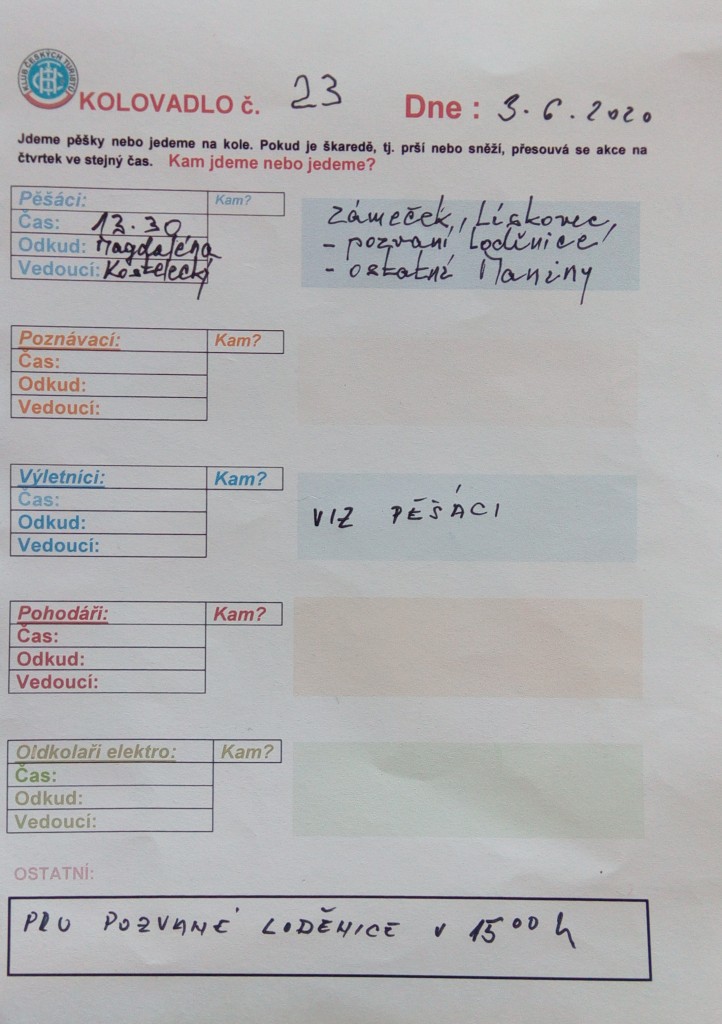 KLUB ČESKÝCH TURISTŮ
KOLOVADLO č. 23 Dne : 3.6.2020
Jdeme pěšky nebo jedeme na kole. Pokud je škaredě, tj. prší nebo sněží, přesouvá se akce na
čtvrtek ve stejný čas. Kam jdeme nebo jedeme?
Pěšáci: Kam?
Čas: 13.30
Odkud: Magdaléna
Vedoucí: Kostelecký
Zámeček, Lískovec,
- pozvaní Loděnice
- ostatní Maniny
Poznávací: Kam?
Čas:
Odkud:
Vedoucí:
Výletníci: Kam?
Čas:
Odkud:
Vedoucí:
VIZ PĚŠÁCI
Pohodáři: Kam?
Čas:
Odkud:
Vedoucí:
Oldkolaři elektro: Kam?
Čas:
Odkud:
Vedoucí:
OSTATNÍ:
PRO POZVANÉ LODĚNICE v 15⁰⁰ h